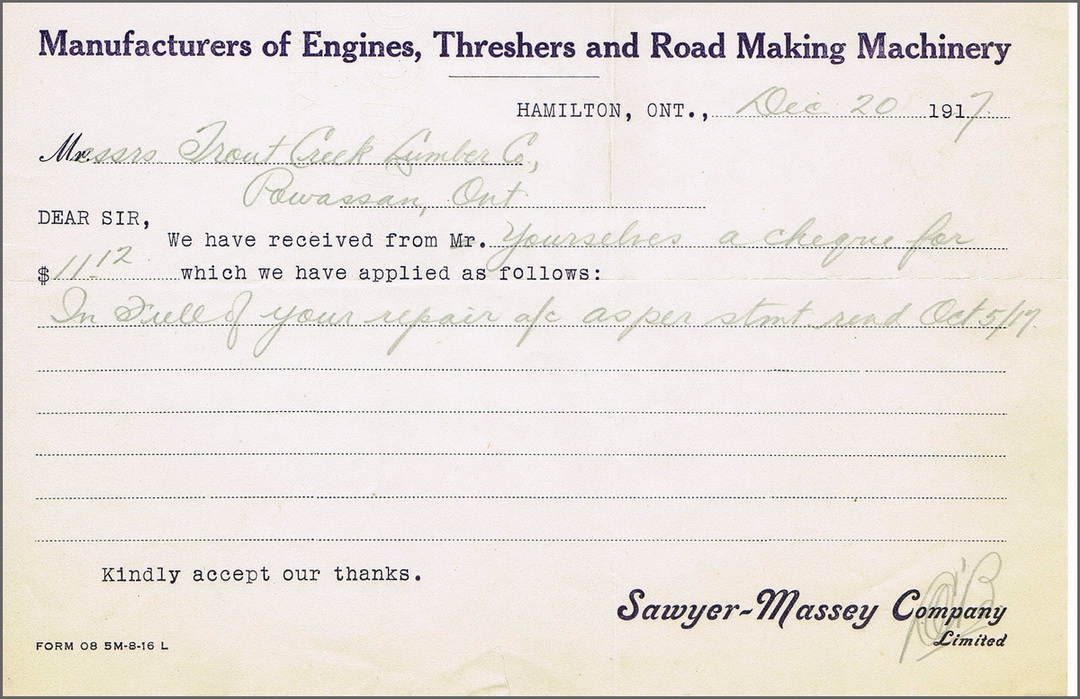 Manufacturers of Engines, Threshers and Road Making Machinery
HAMILTON, ONT., Dec 20 1917
Messrs Trout Creek Lumber Co.,
Powassan, Ont
DEAR SIR,
We have received from Mr. Yourselves a cheque for
$11.12 which we have applied as follows:
In Full of your repair a/c as per stmt rend Oct 5/17.
Kindly accept our thanks.
Sawyer-Massey Company
Limited
FORM 08 5M-8-16 L